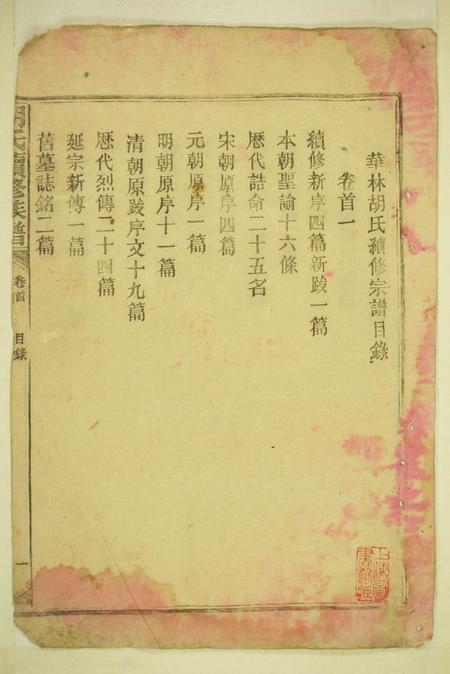 華林胡氏續修宗譜目錄
卷首一
續修新序四篇新跋一篇
本朝聖諭十六條
歷代誥命二十五名
宋朝原序四篇
元朝原序一篇
明朝原序十一篇
清朝原跋序文十九篇
歷代烈傳二十四篇
延宗新傳一篇
舊墓誌銘二篇
胡氏續修族譜
卷首
目錄
一
上海圖書館藏